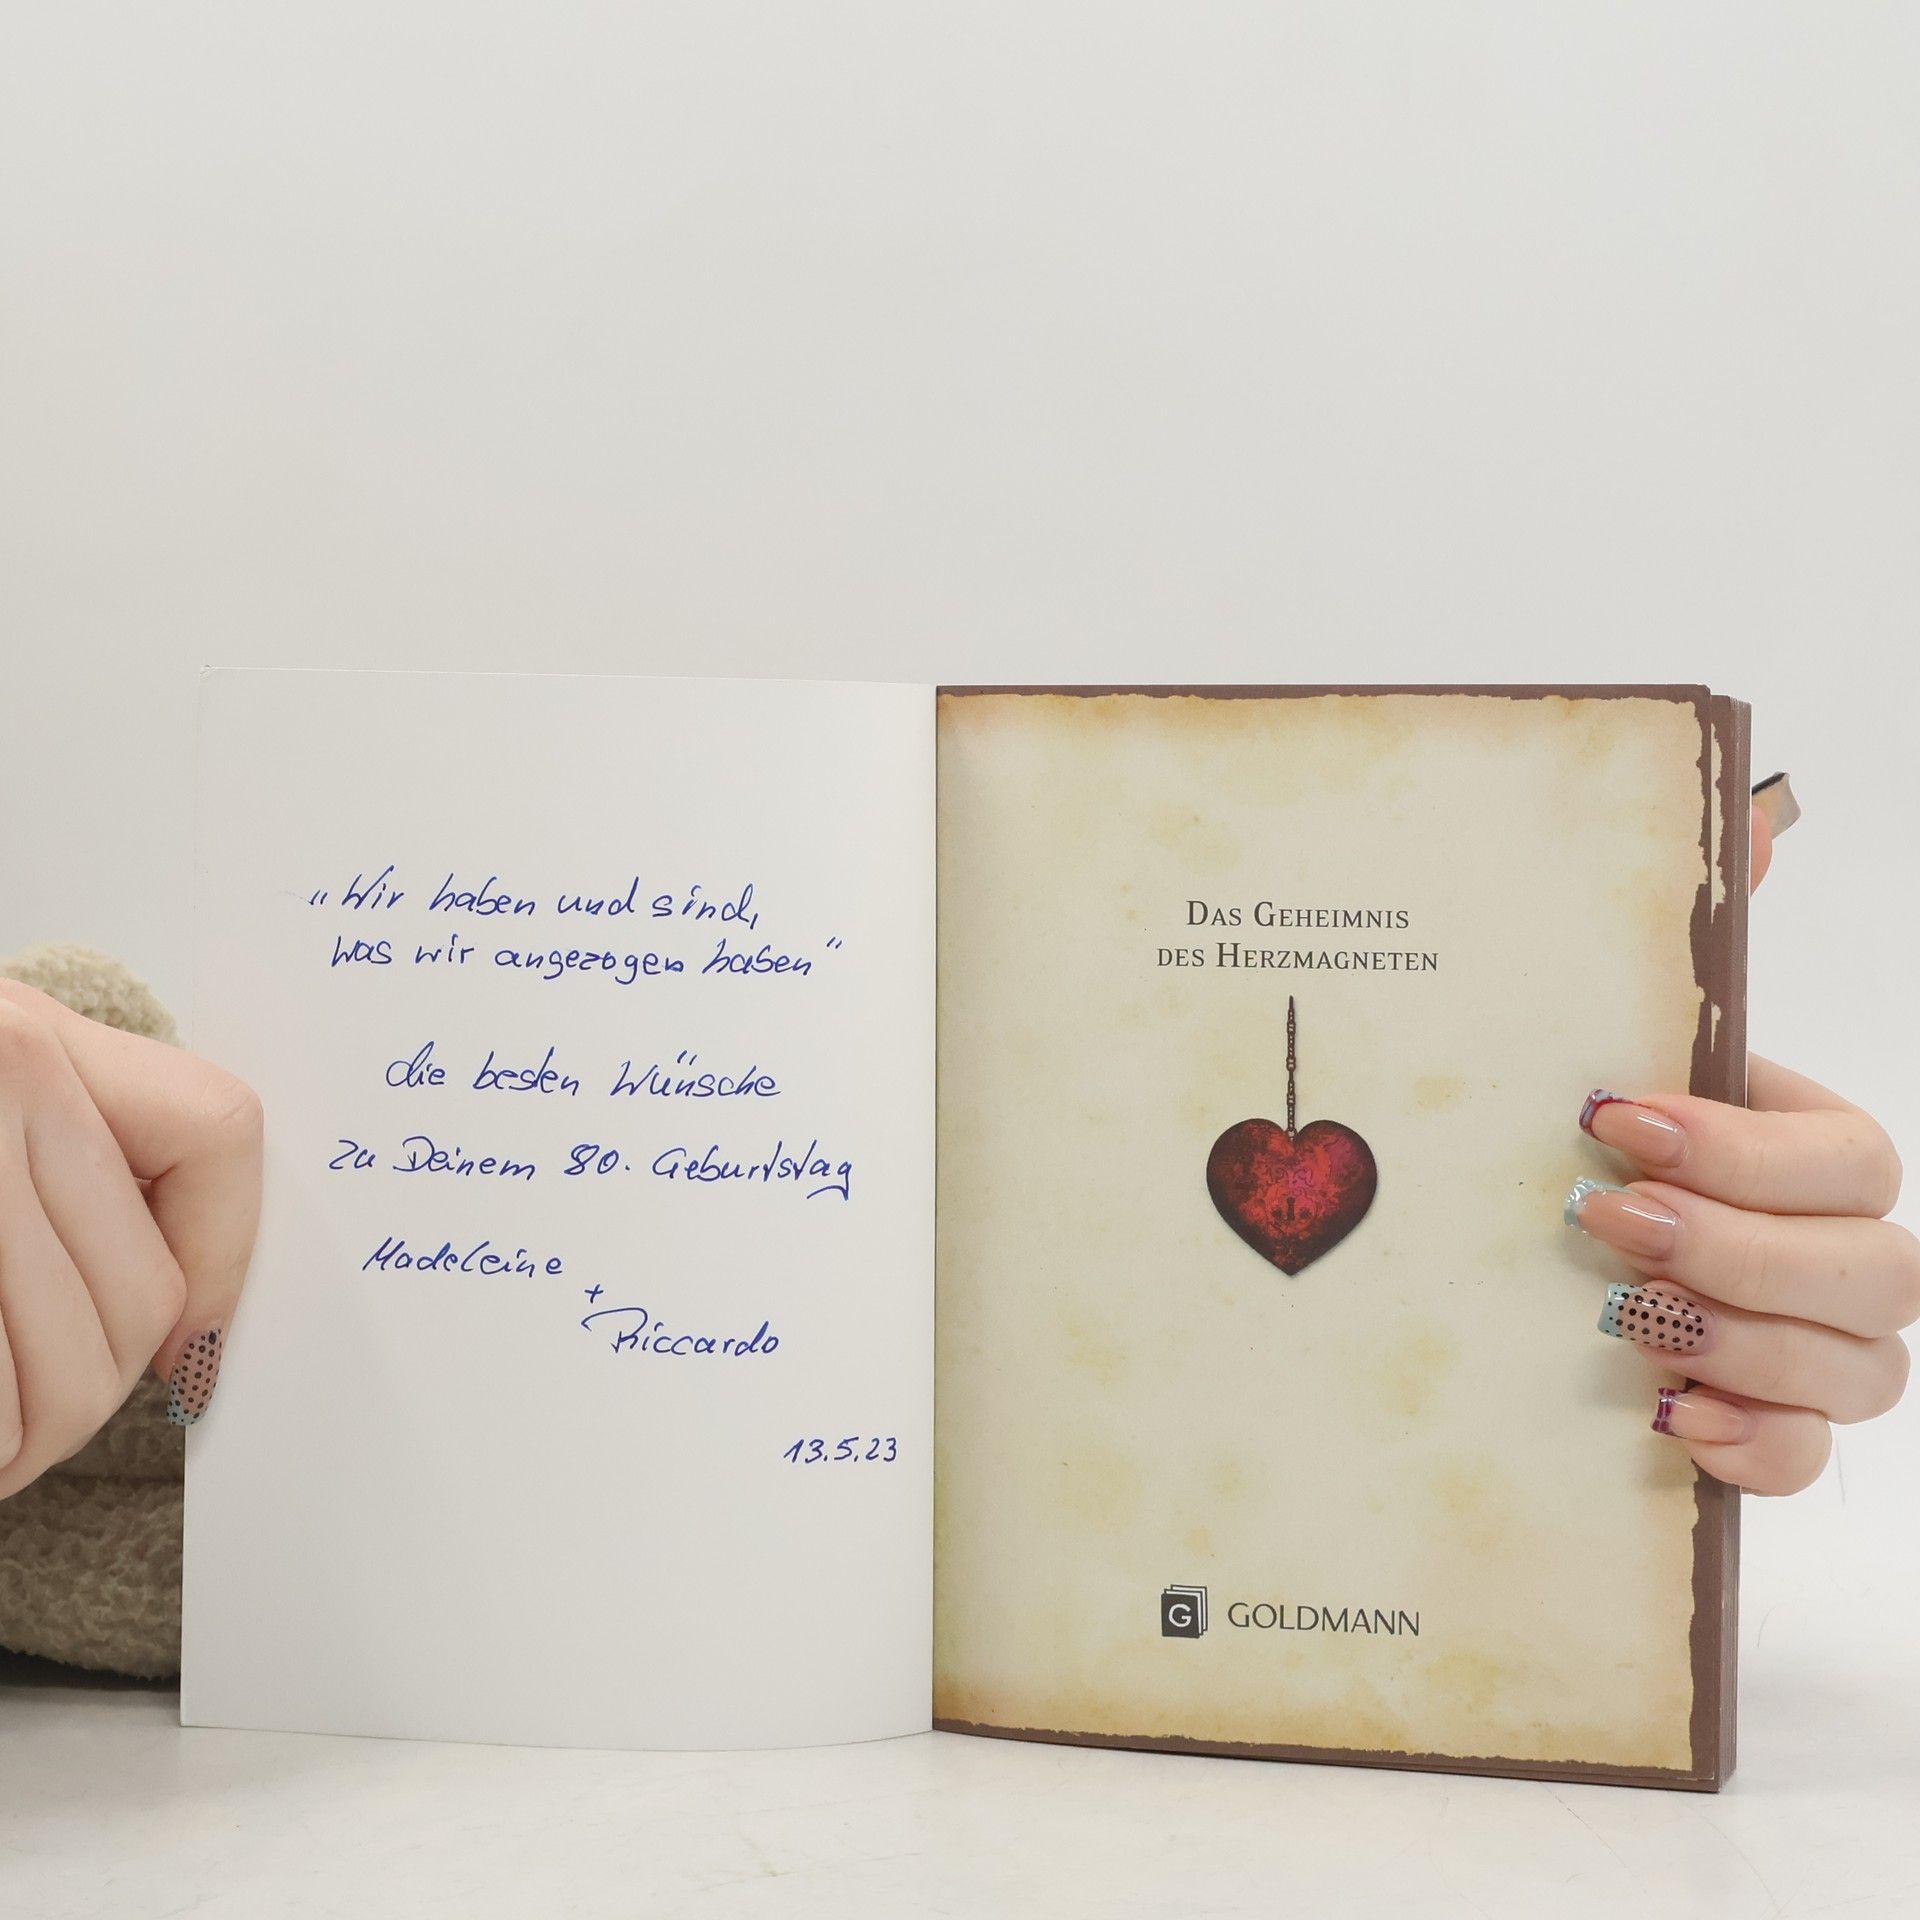 „Wir haben und sind,
was wir angezogen haben“
die besten Wünsche
zu Deinem 80. Geburtstag
Madeleine
+
Riccardo
13.5.23
DAS GEHEIMNIS
DES HERZMAGNETEN
G GOLDMANN